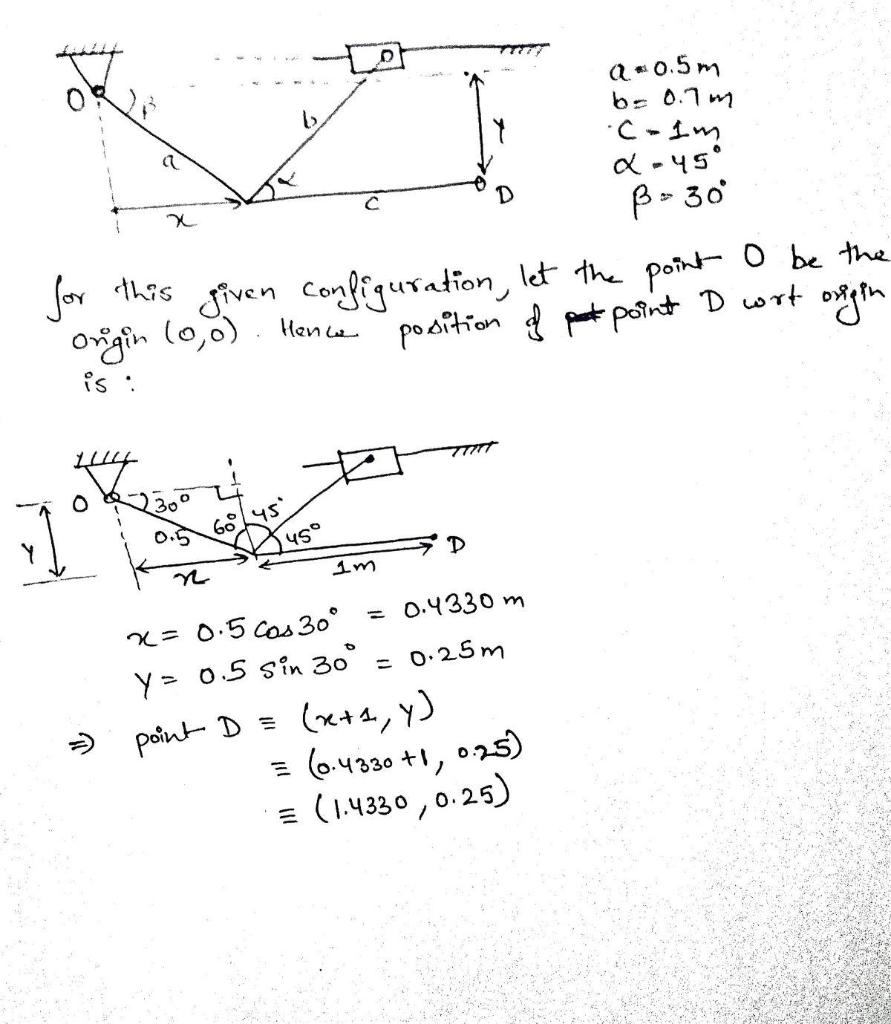 O
β
a
x
b
α
c
Y
D
a = 0.5m
b = 0.7m
C = 1m
α = 45°
β = 30°
for this given configuration, let the point O be the
origin (0,0). Hence position of point D wrt origin
is :
O
30°
60°
45°
45°
0.5
Y
x
1m
D
x = 0.5 cos 30° = 0.4330 m
Y = 0.5 sin 30° = 0.25m
⇒ point D ≡ (x+1, Y)
≡ (0.4330 +1, 0.25)
≡ (1.4330, 0.25)